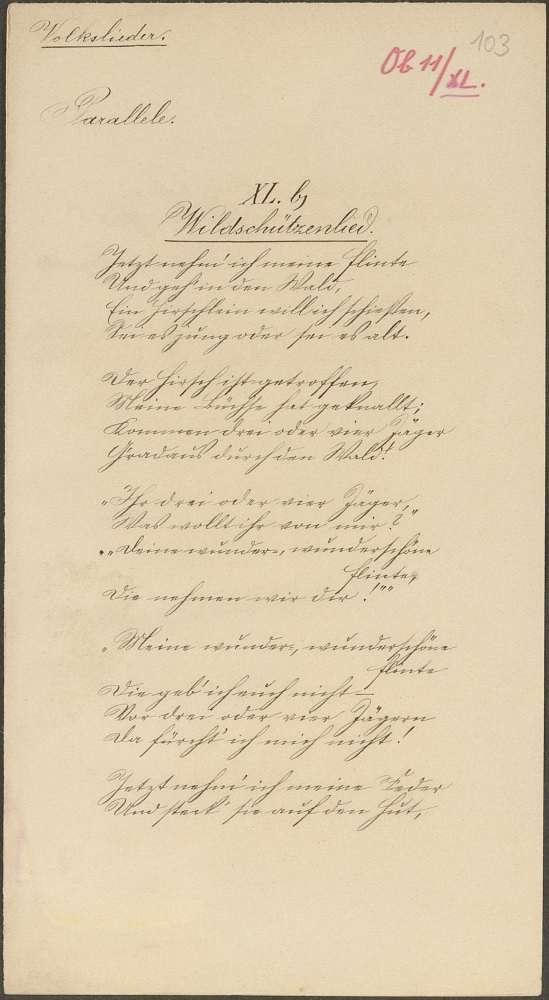 Volkslieder.
103
Ob 11/XL.
Parallele.
XL. b)
Wildschützenlied.
Jetzt nehm' ich meine Flinte
Und geh' in den Wald,
Ein Hirschlein will ich schießen,
Sei es jung oder sei es alt.
Der Hirsch ist getroffen,
Meine Büchse hat geknallt;
Kommen drei oder vier Jäger
Gradaus durch den Wald!
„Ihr drei oder vier Jäger,
Was wollt ihr von mir?"
„„Deine wunder-, wunderschöne
Flinte,
Die nehmen wir dir!""
„Meine wunder-, wunderschöne
Flinte
Die geb' ich euch nicht –
Vor drei oder vier Jägern
Da fürcht' ich mich nicht!
Jetzt nehm' ich meine Feder
Und steck' sie auf den Hut,